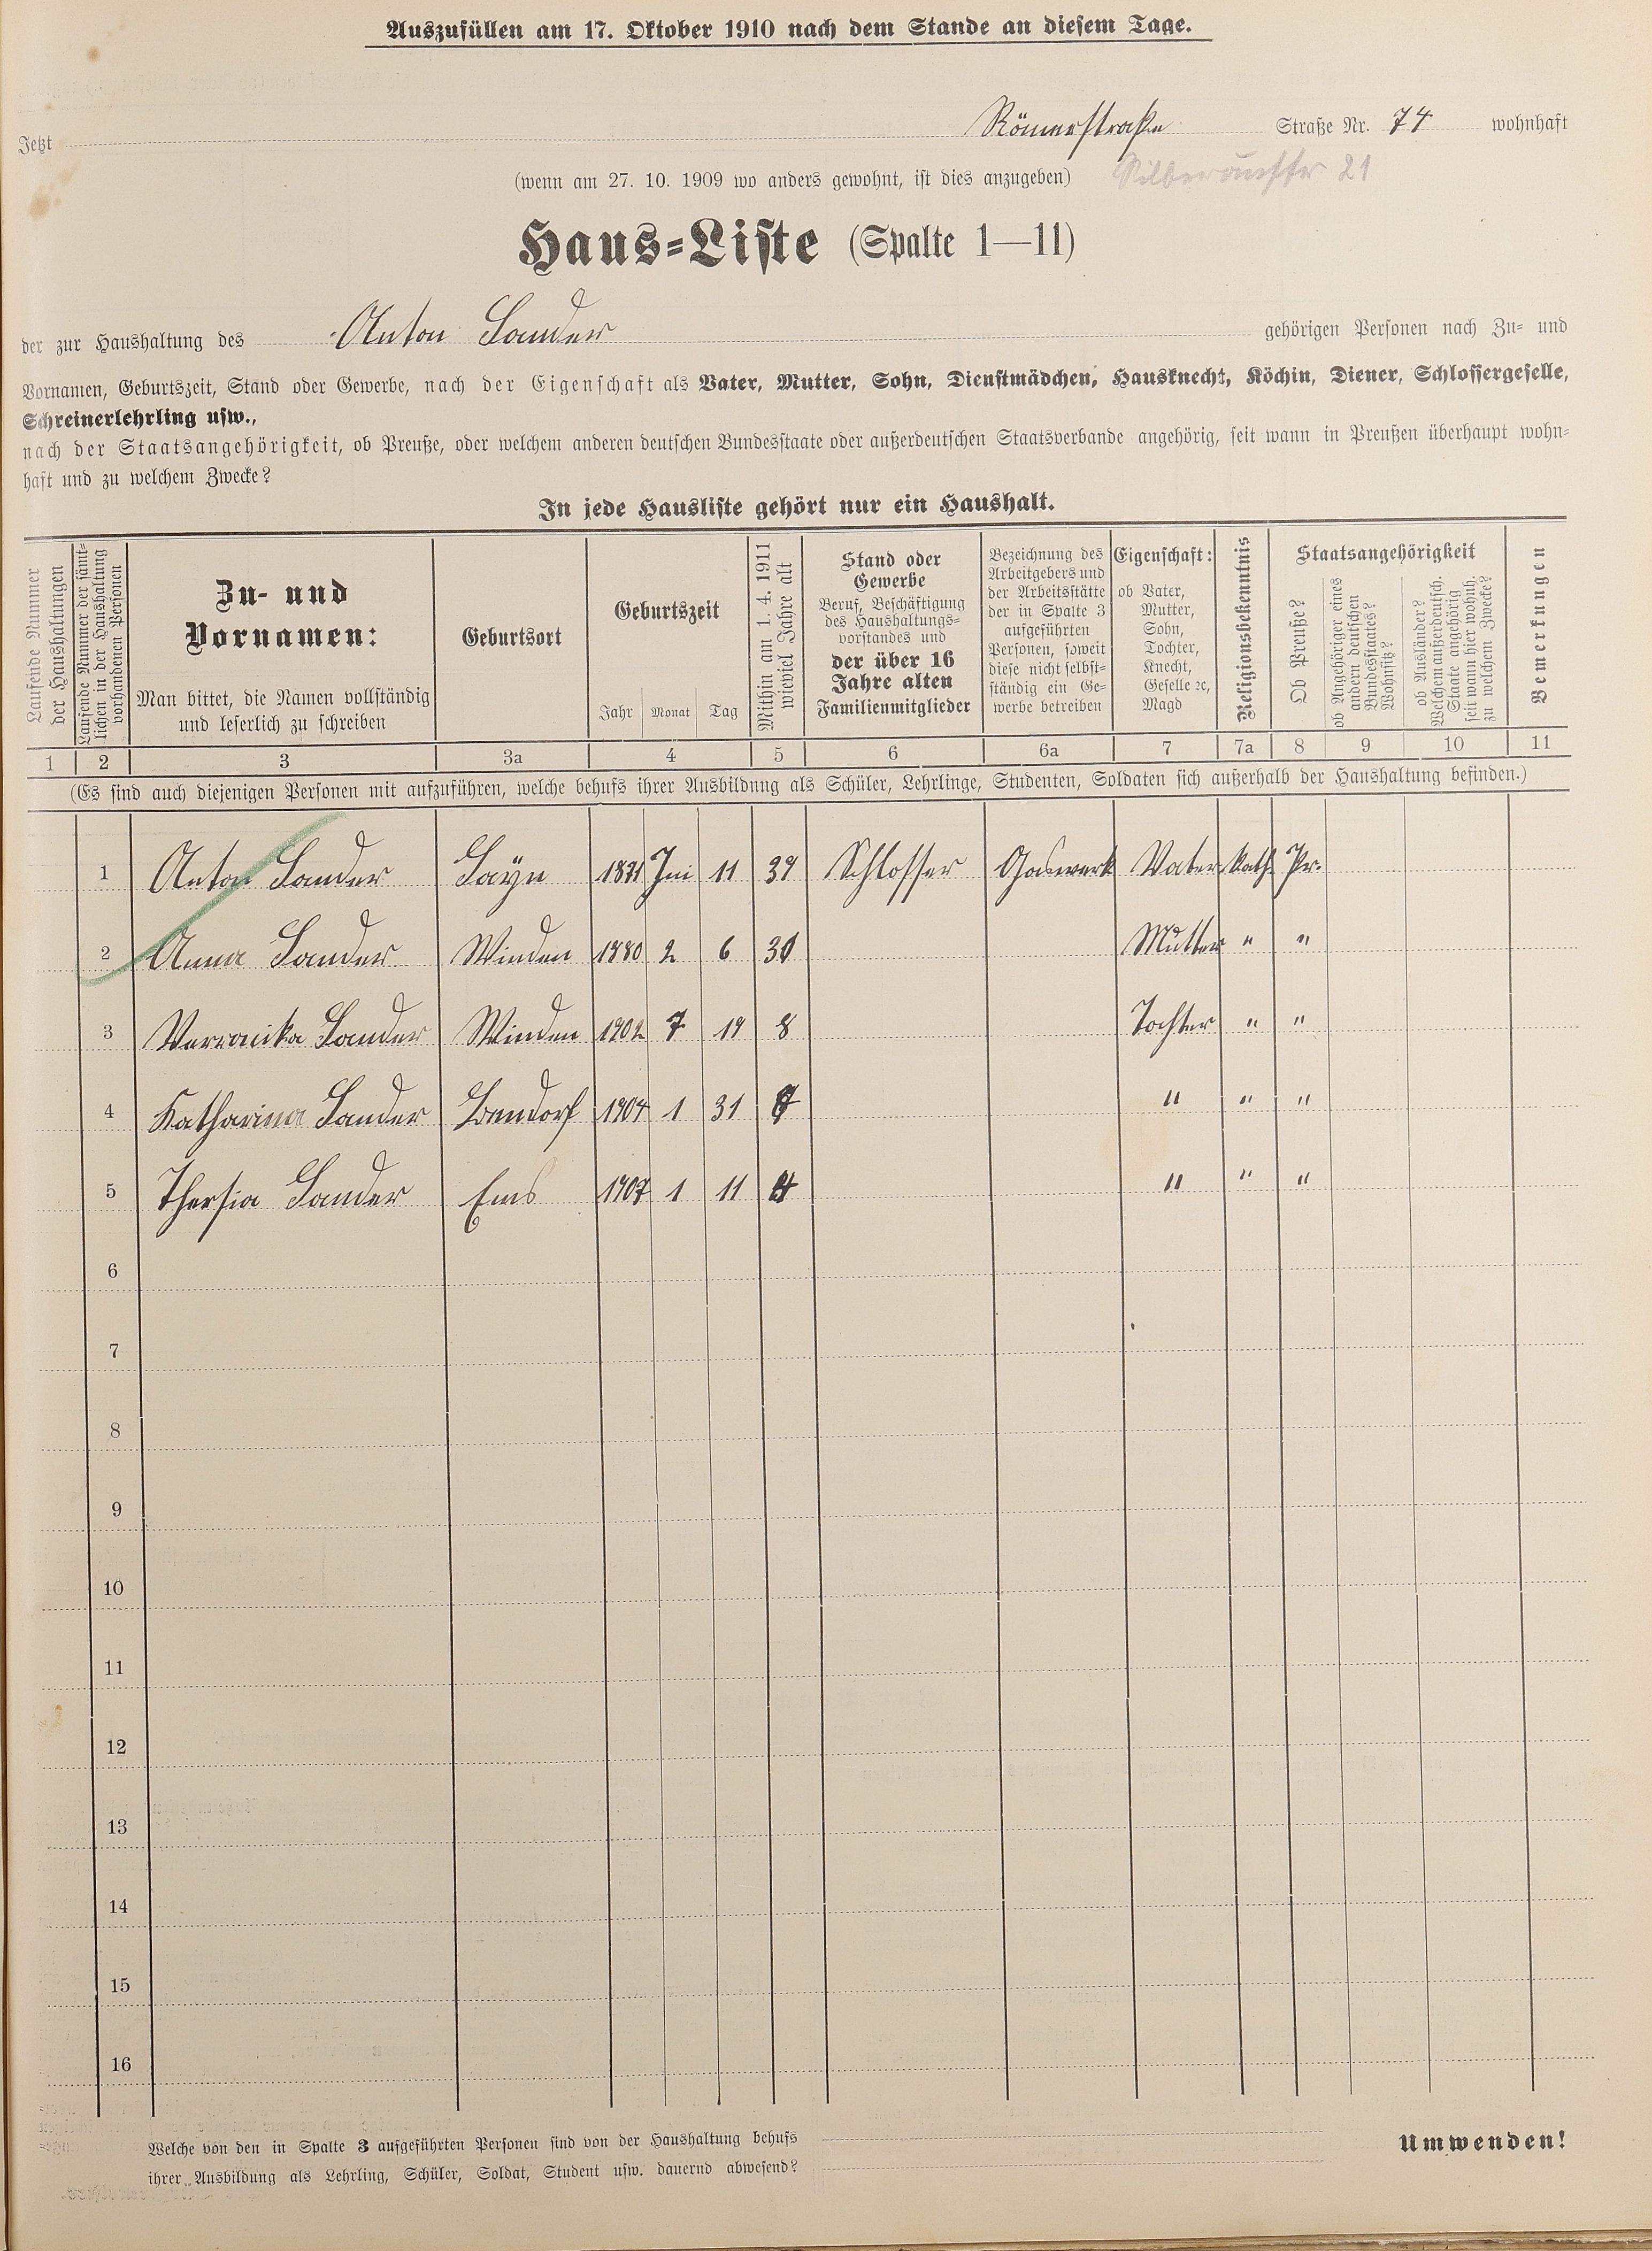 Auszufüllen am 17. Oktober 1910 nach dem Stande an diesem Tage.
Jetzt Römerstraße Straße Nr. 74 wohnhaft
(wenn am 27. 10. 1909 wo anders gewohnt, ist dies anzugeben) 21
Haus-Liste (Spalte 1—11)
der zur Haushaltung des Anton Sander gehörigen Personen nach Zu- und
Vornamen, Geburtszeit, Stand oder Gewerbe, nach der Eigenschaft als Vater, Mutter, Sohn, Dienstmädchen, Hausknecht, Köchin, Diener, Schlossergeselle,
Schreinerlehrling usw.,
nach der Staatsangehörigkeit, ob Preuße, oder welchem anderen deutschen Bundesstaate oder außerdeutschen Staatsverbande angehörig, seit wann in Preußen überhaupt wohn-
haft und zu welchem Zwecke?
In jede Hausliste gehört nur ein Haushalt.
Laufende Nummer der Haushaltungen
Laufende Nummer der sämt-lichen in der Haushaltung vorhandenen Personen
Zu- und Vornamen:
Man bittet, die Namen vollständig und leserlich zu schreiben
Geburtsort
Geburtszeit
Jahr Monat Tag
Mithin am 1. 4. 1911 wieviel Jahre alt
Stand oder Gewerbe
Beruf, Beschäftigung des Haushaltungs-vorstandes und
der über 16 Jahre alten Familienmitglieder
Bezeichnung des Arbeitgebers und der Arbeitsstätte der in Spalte 3 aufgeführten Personen, soweit diese nicht selbst-ständig ein Ge-werbe betreiben
Eigenschaft:
ob Vater, Mutter, Sohn, Tochter, Knecht, Geselle ꝛc, Magd
Religionsbekenntnis
Staatsangehörigkeit
Ob Preuße?
ob Angehöriger eines andern deutschen Bundesstaates? Wohnsitz?
ob Ausländer? Welchem außerdeutsch. Staate angehörig seit wann hier wohnh. zu welchem Zwecke?
Bemerkungen
1 2 3 3a 4 5 6 6a 7 7a 8 9 10 11
(Es sind auch diejenigen Personen mit aufzuführen, welche behufs ihrer Ausbildung als Schüler, Lehrlinge, Studenten, Soldaten sich außerhalb der Haushaltung befinden.)
1 Anton Sander Sayn 11 39 Schlosser Gaswerk Vater kath. Pr.
2 Anna Sander Winden 1880 2 6 31 Mutter " "
3 Verronika Sander Winden 1902 7 19 8 Tochter " "
4 Katharina Sander 1904 1 31 7 " " "
5 Thersia Sander Ems 1907 1 11 4 " " "
6
7
8
9
10
11
12
13
14
15
16
Welche von den in Spalte 3 aufgeführten Personen sind von der Haushaltung behufs
ihrer Ausbildung als Lehrling, Schüler, Soldat, Student usw. dauernd abwesend?
Umwenden!